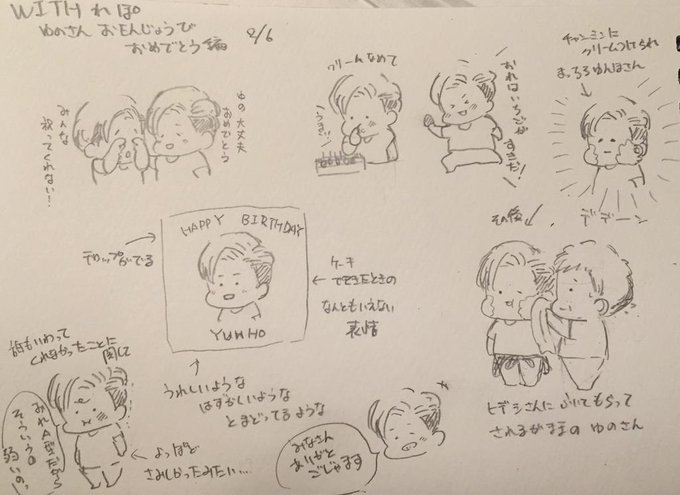 WITHれぽ
ゆのさん おたんじょうび
おめでとう編
2/6
みんな
祝ってくれない!
ゆの大丈夫
おめでとう
クリームなめて
うまっ!
おれはいちごが
すきだ!
チャンミンに
クリームつけられ
まっちろゆんほさん
デデーン
その後
HAPPY BIRTHDAY
YUNHO
テロップがでる
ケーキ
でてきたときの
なんともいえない
表情
うれしいような
はずかしいような
とまどってるような
誰もいわって
くれなかったことに
関して
おれA型だから
そういうの
弱いの。
よっぽど
さみしかったみたい…
みなさん
ありがと
ごじゃます
ヒデシさんにふいてもらって
されるがままのゆのさん